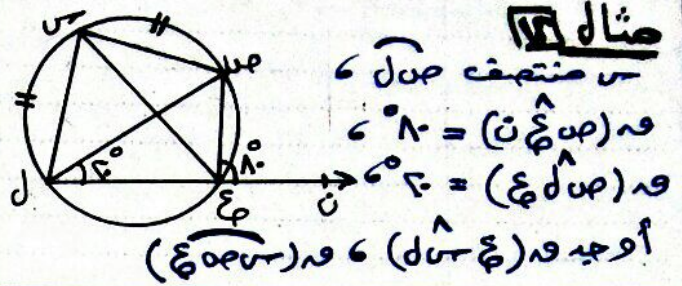 مثال ١٢
س منتصف ص͡ل ،
ق(ص ع^ ن) = ٨٠° ،
ق(ص ل^ ع) = ٣٠° ،
أوجد ق(ع س^ ل) ، ق(س͡ص͡ع)
س
ص
ل
ع
ن
٣٠°
٨٠°